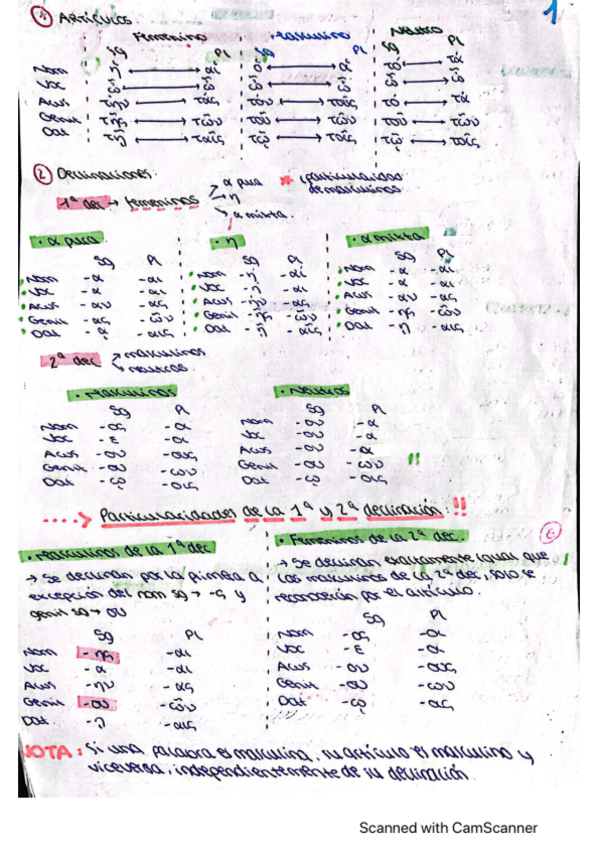 1
① Artículos
Femenino Masculino Neutro
Sg Pl Sg Pl Sg Pl
Nom
Voc
Acus τάς τούς τά
Genit τῶν τοῦ τῶν τοῦ τῶν
Dat ταῖς τῷ τοῖς τῷ τοῖς
② Declinaciones
1ª dec → femeninos
α pura
η
α mixta
* (particularidad de masculinos
· α pura · η · α mixta
Sg Pl Sg Pl Sg Pl
Nom -α -αι Nom -η -αι Nom -α -αι
Voc -α -αι Voc -η -αι Voc -α -αι
Acus -αν -ας Acus -ην -ας Acus -αν -ας
Genit -ας -ῶν Genit -ης -ῶν Genit -ης -ῶν
Dat -ᾳ -αις Dat -ῃ -αις Dat -ῃ -αις
2ª dec
masculinos
neutros
· Masculinos · Neutros
Sg Pl Sg Pl
Nom -ος Nom -ον -α
Voc -ε Voc -ον -α
Acus -ον Acus -ον -α
Genit -ου -ων Genit -ου -ων !!
Dat -ῳ -οις Dat -ῳ -οις
....> Particularidades de la 1ª y 2ª declinación: !!
· Masculinos de la 1ª dec · Femeninos de la 2ª dec.
→ Se declinan por la primera a
excepción del nom sg → -ς y
genit sg → ου
→ Se declinan exactamente igual que
los masculinos de la 2ª dec, solo se
reconocerían por el artículo.
Sg Pl Sg Pl
Nom -ης -αι Nom -ος
Voc -α -αι Voc -ε
Acus -ην -ας Acus -ον -ους
Genit -ου -ῶν Genit -ου -ων
Dat -ῃ -αις Dat -ῳ -οις
NOTA: Si una palabra es masculina, su artículo es masculino y
viceversa, independientemente de su declinación.
Scanned with CamScanner